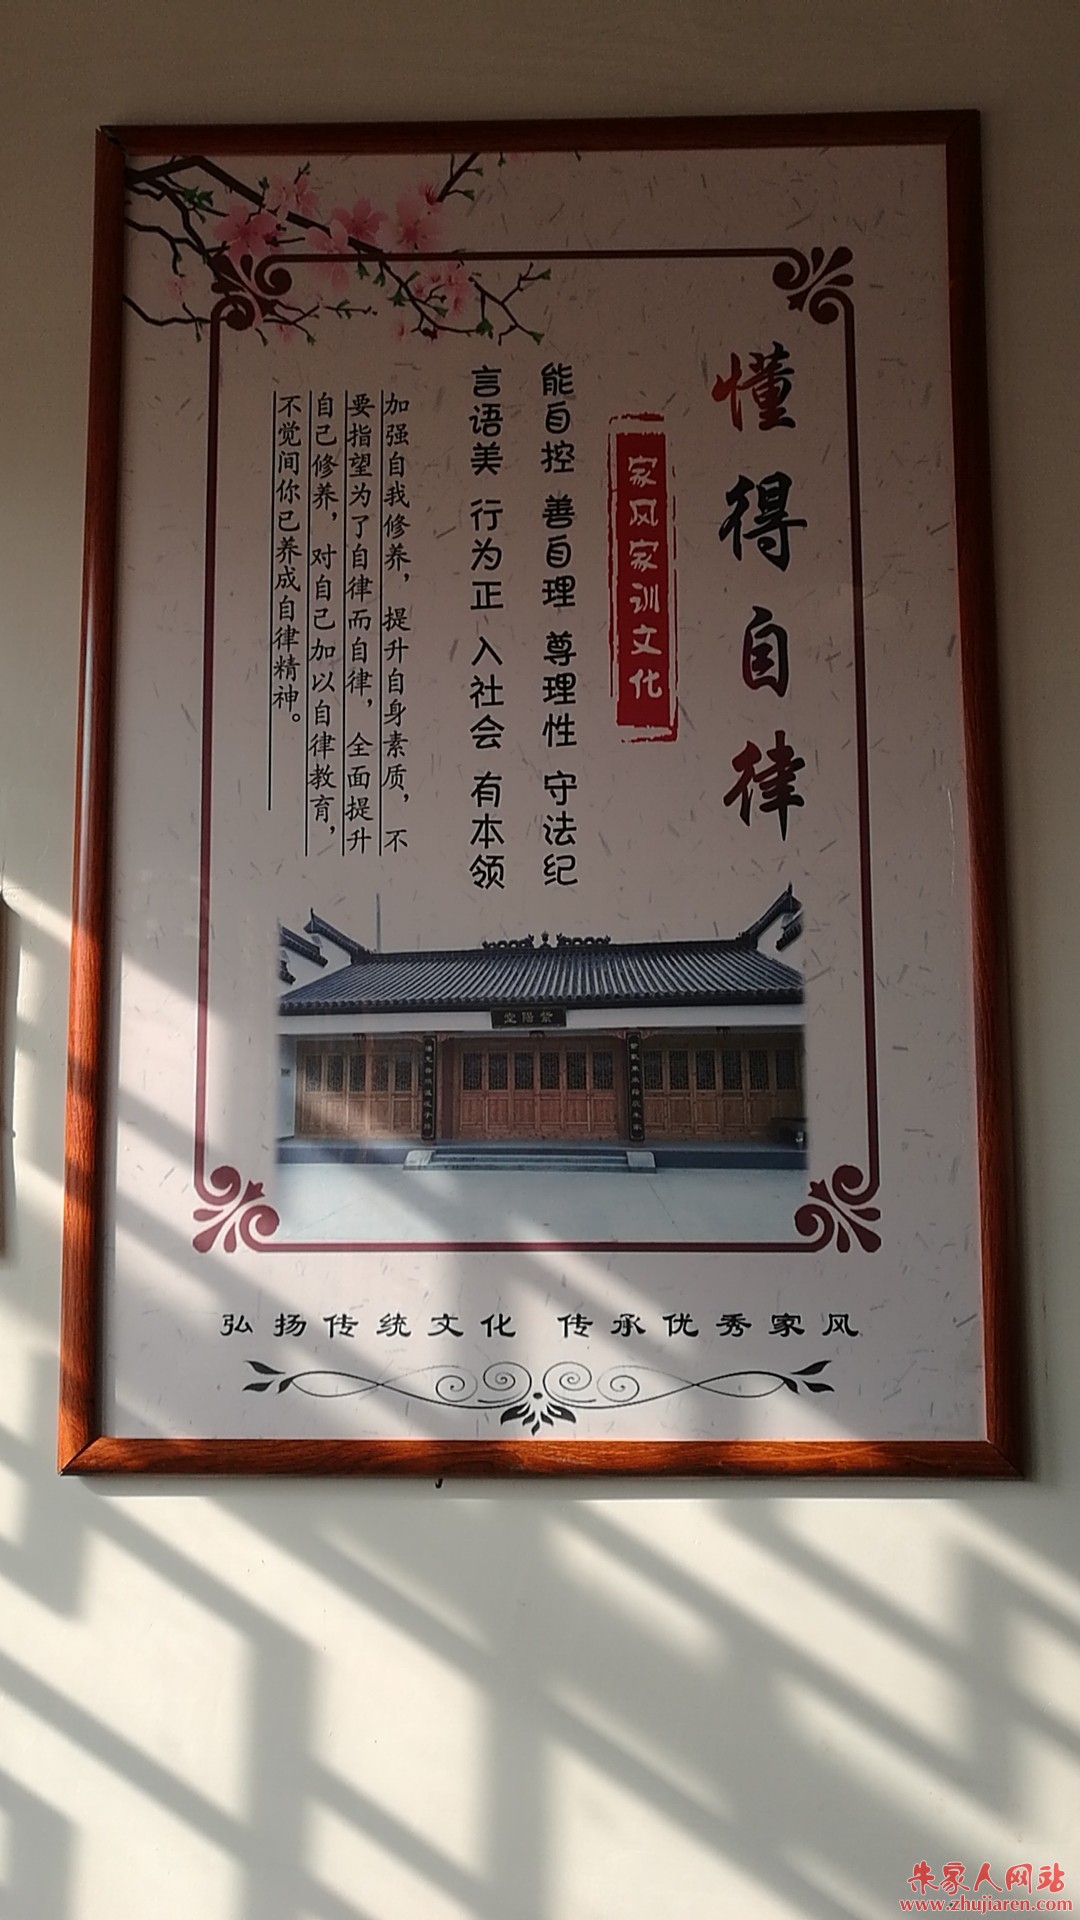 懂得自律
家风家训文化
能自控 善自理 尊理性 守法纪
言语美 行为正 入社会 有本领
加强自我修养，提升自身素质，不
要指望为了自律而自律，全面提升
自己修养，对自己加以自律教育，
不觉间你已养成自律精神。
紫陽堂
弘扬传统文化 传承优秀家风
朱家人网站
www.zhujiaren.com